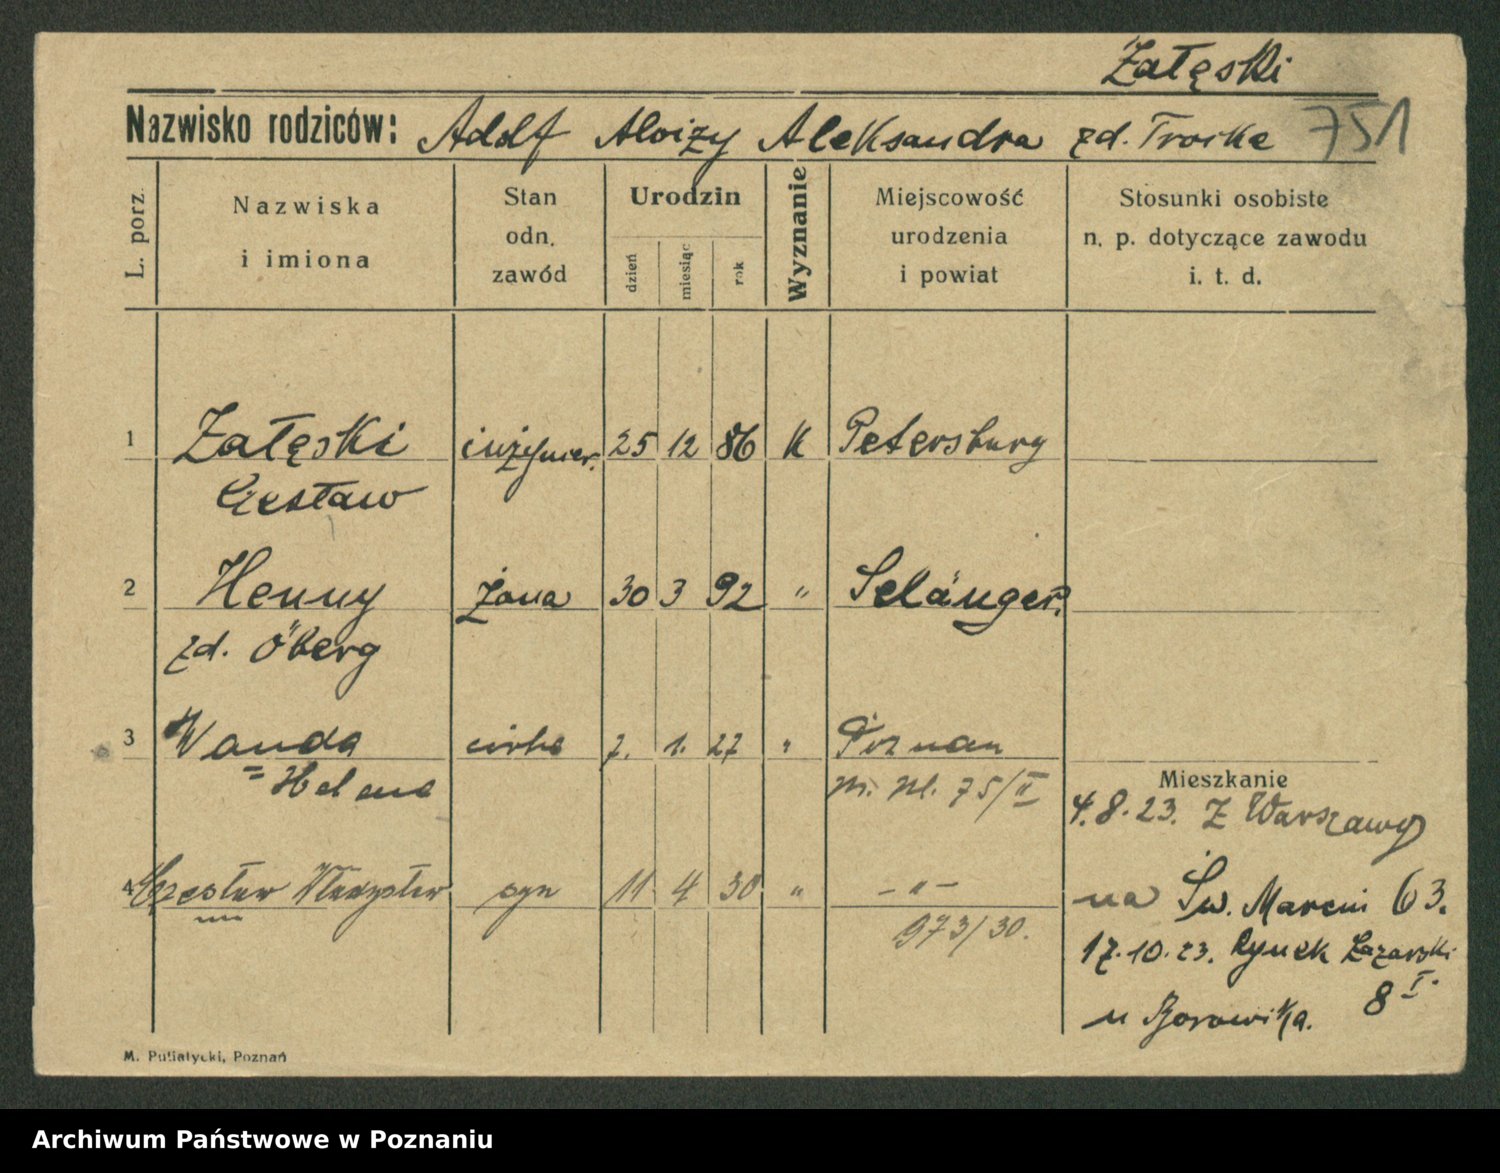 Załęski
Nazwisko rodziców: Adolf Aloizy Aleksandra zd. Troska 751
L. porz.
Nazwiska
i imiona
Stan
odn.
zawód
Urodzin
dzień
miesiąc
rok
Wyznanie
Miejscowość
urodzenia
i powiat
Stosunki osobiste
n. p. dotyczące zawodu
i. t. d.
1 Załęski inżynier. 25 12 86 K Petersburg
Czesław
2 Henny żona 30 3 92 " Selånger
zd. Öberg
3 Wanda córka 7. 1. 27 " Poznań
= Helena 75/II
4 Czesław Władysław syn 11 4 30 " -"-
973/30.
Mieszkanie
4.8.23. Z Warszawy
na Św. Marcin 63.
17.10.23. Rynek Łazarski
8 I.
u Borowika.
M. Putiatycki, Poznań
Archiwum Państwowe w Poznaniu